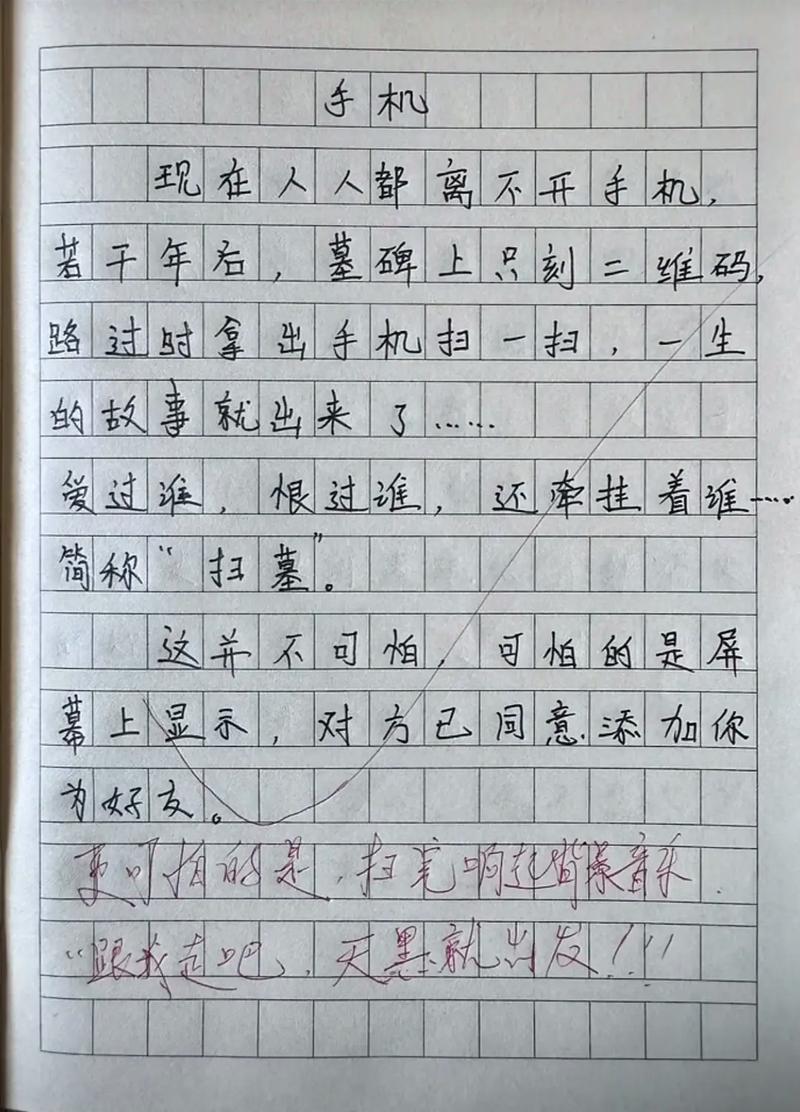 手机
现在人人都离不开手机，
若干年后，墓碑上只刻二维码，
路过时拿出手机扫一扫，一生
的故事就出来了……
爱过谁，恨过谁，还牵挂着谁……
简称“扫墓”。
这并不可怕，可怕的是屏
幕上显示，对方已同意添加你
为好友。
更可怕的是，扫完响起背景音乐
“跟我走吧，天黑就出发！！！